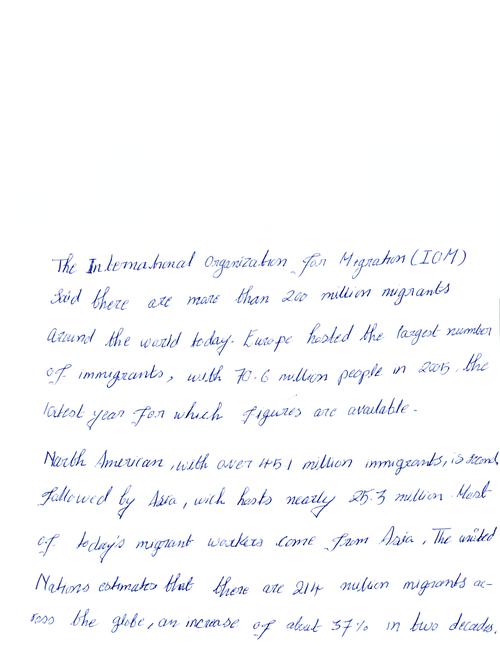 The International Organization for Migration (IOM)
Said there are more than 200 million migrants
around the world today. Europe hosted the largest number
of immigrants, with 70.6 million people in 2005, the
latest year for which figures are available.
North American, with over 45.1 million immigrants, is second,
followed by Asia, wich hosts nearly 25.3 million. Most
of today's migrant workers come from Asia, The united
Nations estimates that there are 214 million migrants ac-
ross the globe, an increase of about 37% in two decades.